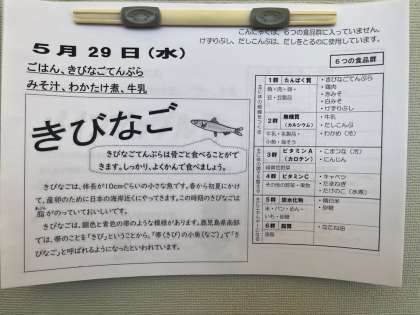 こんにゃくは、6つの食品群に入っていません。
けずりぶし、だしこんぶは、だしをとるのに使用しています。
5月29日(水)
ごはん、きびなごてんぷら
みそ汁、わかたけ煮、牛乳
きびなご
きびなごてんぷらは骨ごと食べることがで
きます。しっかり、よくかんで食べましょう。
きびなごは、体長が10cmぐらいの小さな魚です。春から初夏にかけ
て、産卵のために日本の海岸近くにやってきます。この時期のきびなごは
脂がのっていておいしいです。
きびなごは、銀色と青色の帯のような模様があります。鹿児島県南部
では、帯のことを「きび」ということから、「帯(きび)の小魚(なご)」で「き
びなご」と呼ばれるようになったといわれています。
6つの食品群
1群 たんぱく質
魚・肉・卵・
豆・豆製品
・きびなごてんぷら
・鶏肉
・赤みそ
・白みそ
・けずりぶし
2群 無機質
(カルシウム)
牛乳・乳製品・
小魚・海そう
・牛乳
・だしこんぶ
・わかめ(市)
3群 ビタミンA
(カロテン)
緑黄色野菜
・こまつな(市)
・にんじん
4群 ビタミンC
その他の野菜・果物
・キャベツ
・たまねぎ
・たけのこ(水煮)
5群 炭水化物
米・パン・めん・
いも・砂糖
・精白米
・砂糖
6群 脂質
油脂
・なたね油